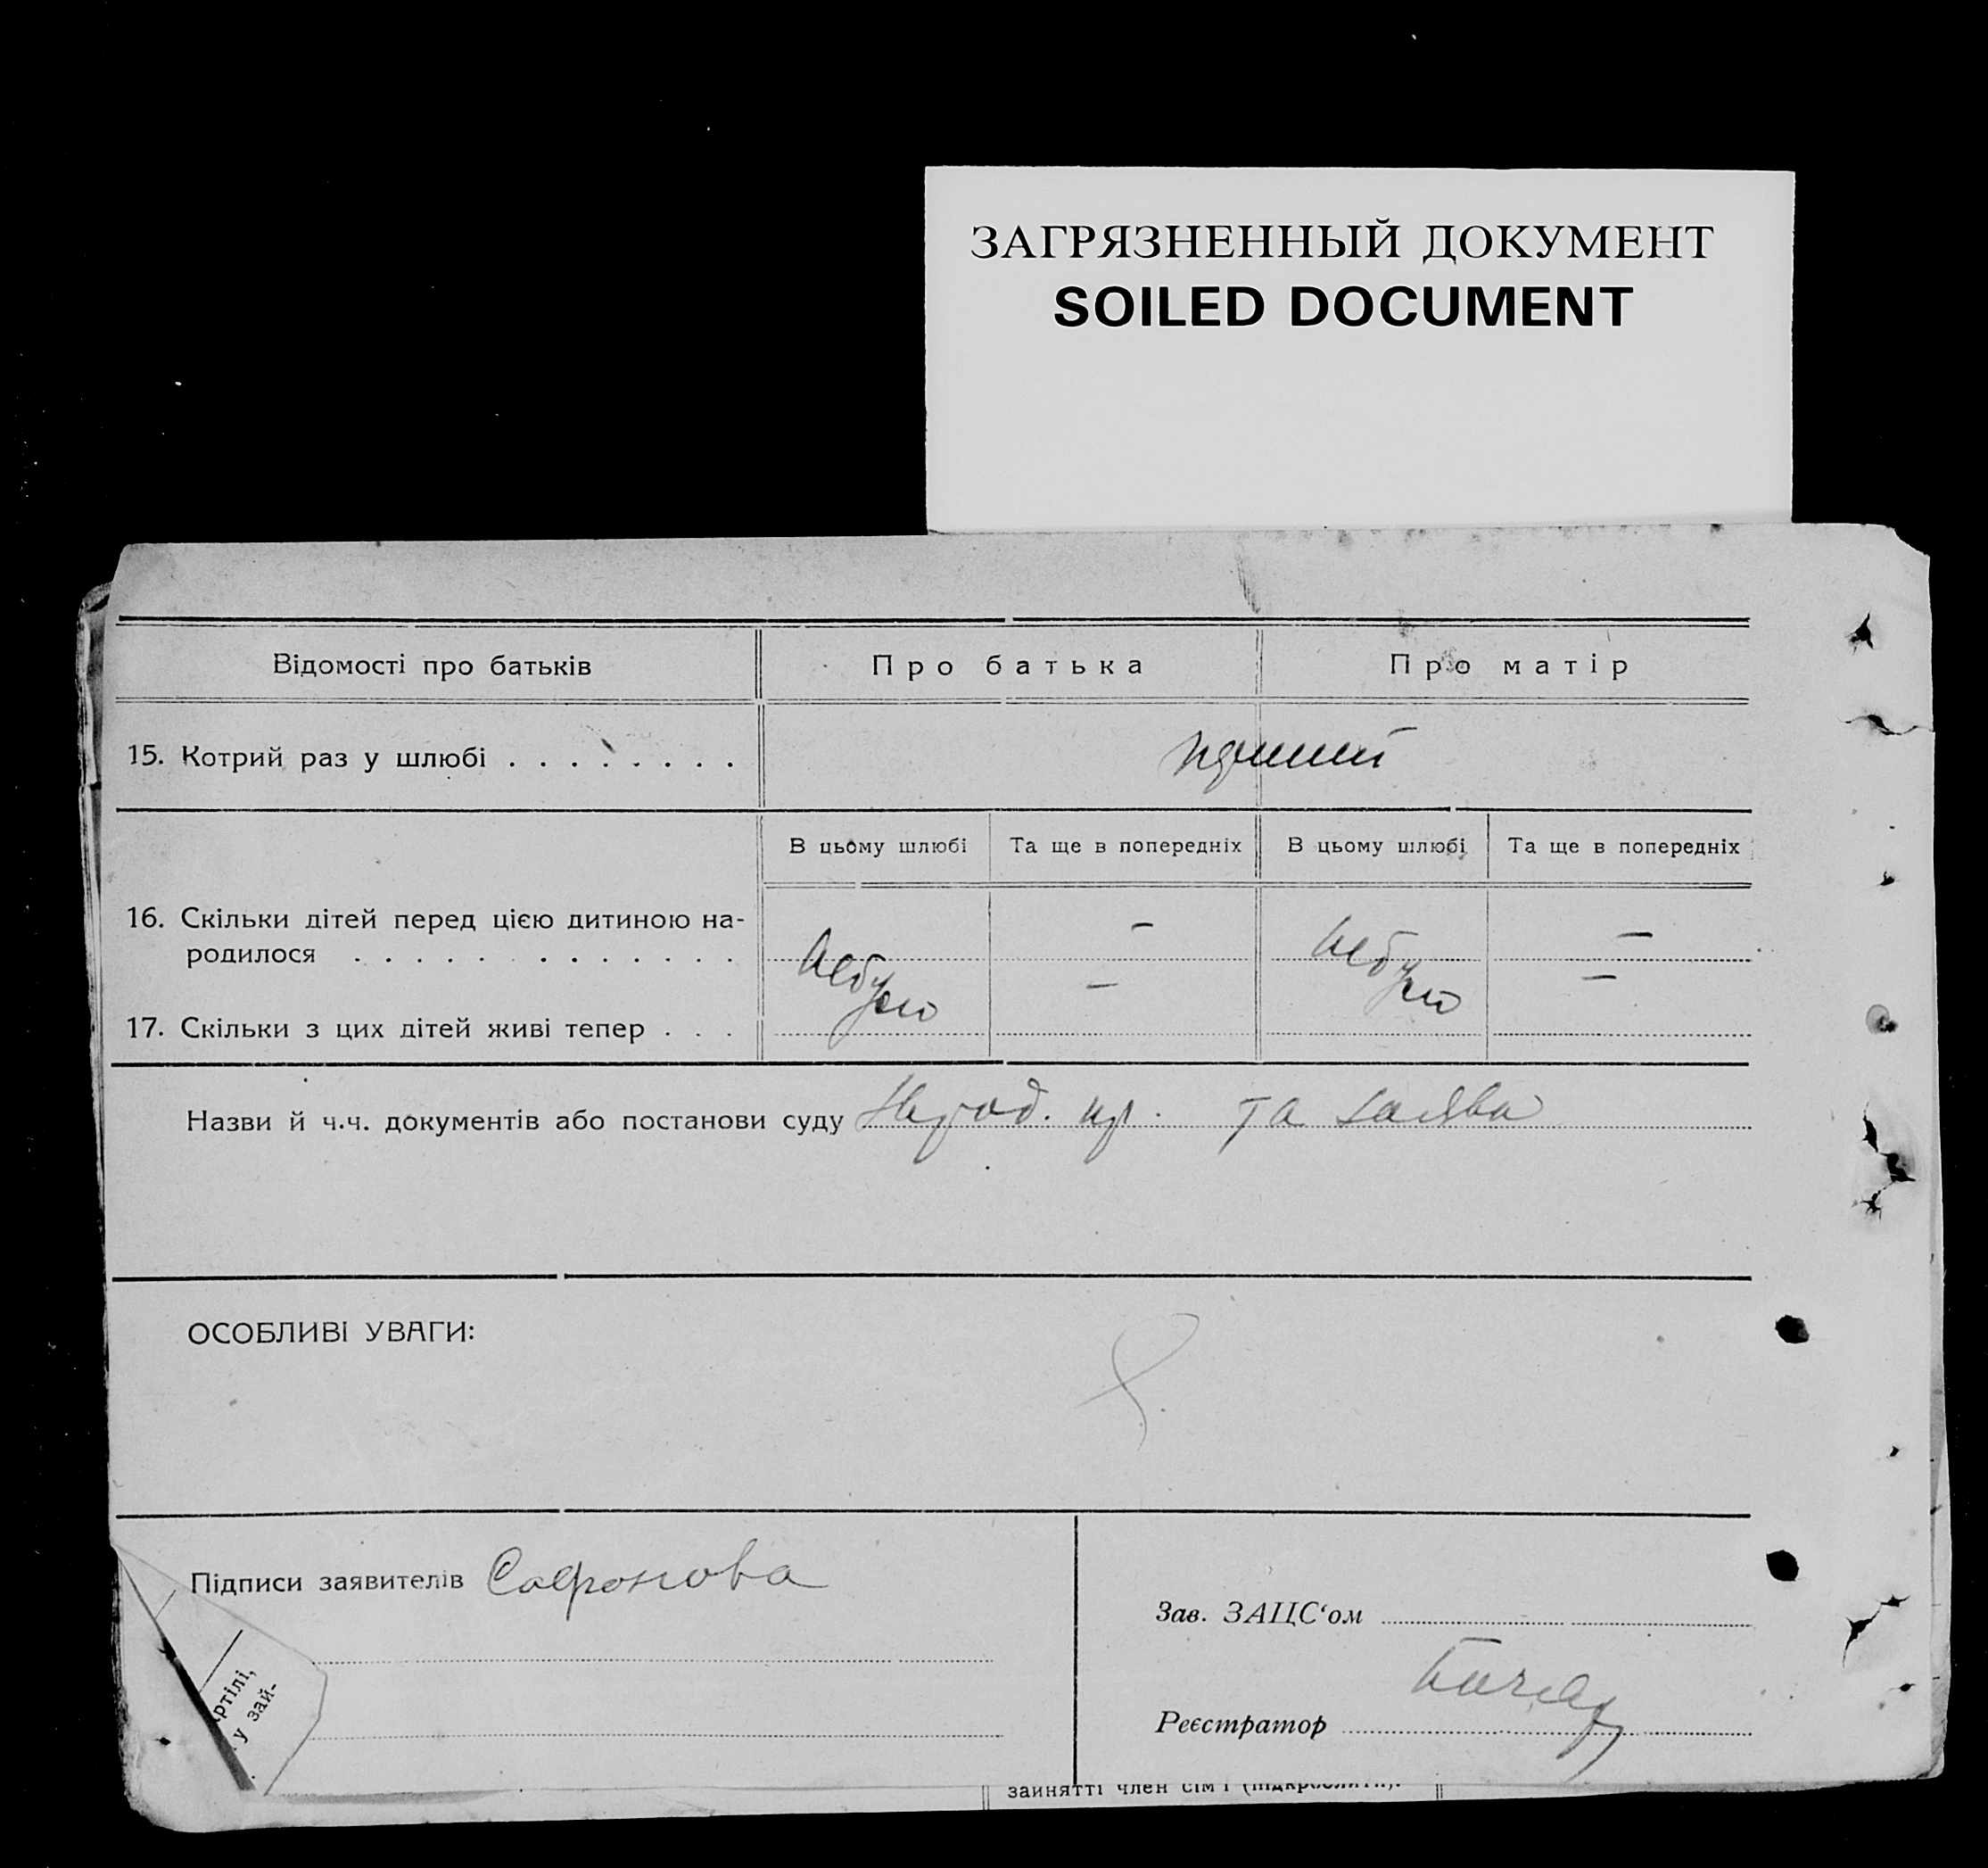 ЗАГРЯЗНЕННЫЙ ДОКУМЕНТ
SOILED DOCUMENT
Відомості про батьків
Про батька
Про матір
15. Котрий раз у шлюбі . . . . . . . .
В цьому шлюбі
Та ще в попередніх
В цьому шлюбі
Та ще в попередніх
16. Скільки дітей перед цією дитиною на-
родилося . . . . . . . . . . . .
— —
небуло — небуло —
17. Скільки з цих дітей живі тепер . . .
Назви й ч.ч. документів або постанови суду та заява
ОСОБЛИВІ УВАГИ:
Підписи заявителів Сафонова
Зав. ЗАЦС‘ом
Реєстратор
ртілі,
у зай-
зайнятті член сім'ї (підкреслити).